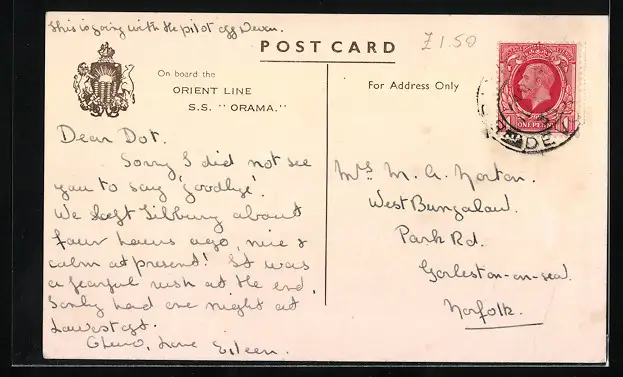 This is going with the pilot off Devon.
POST CARD
£1.50
On board the
ORIENT LINE
S.S. "ORAMA."
For Address Only
ONE PENNY
Dear Dot.
Sorry I did not see
you to say 'goodbye'.
We left Tilbury about
four hours ago, nice &
calm at present! It was
a fearful rush at the end,
only had one night at
Lowestoft.
Cheerio, Love Eileen.
Mrs M. A. Norton.
West Bungalow.
Park Rd.
Gorleston-on-sea.
Norfolk.